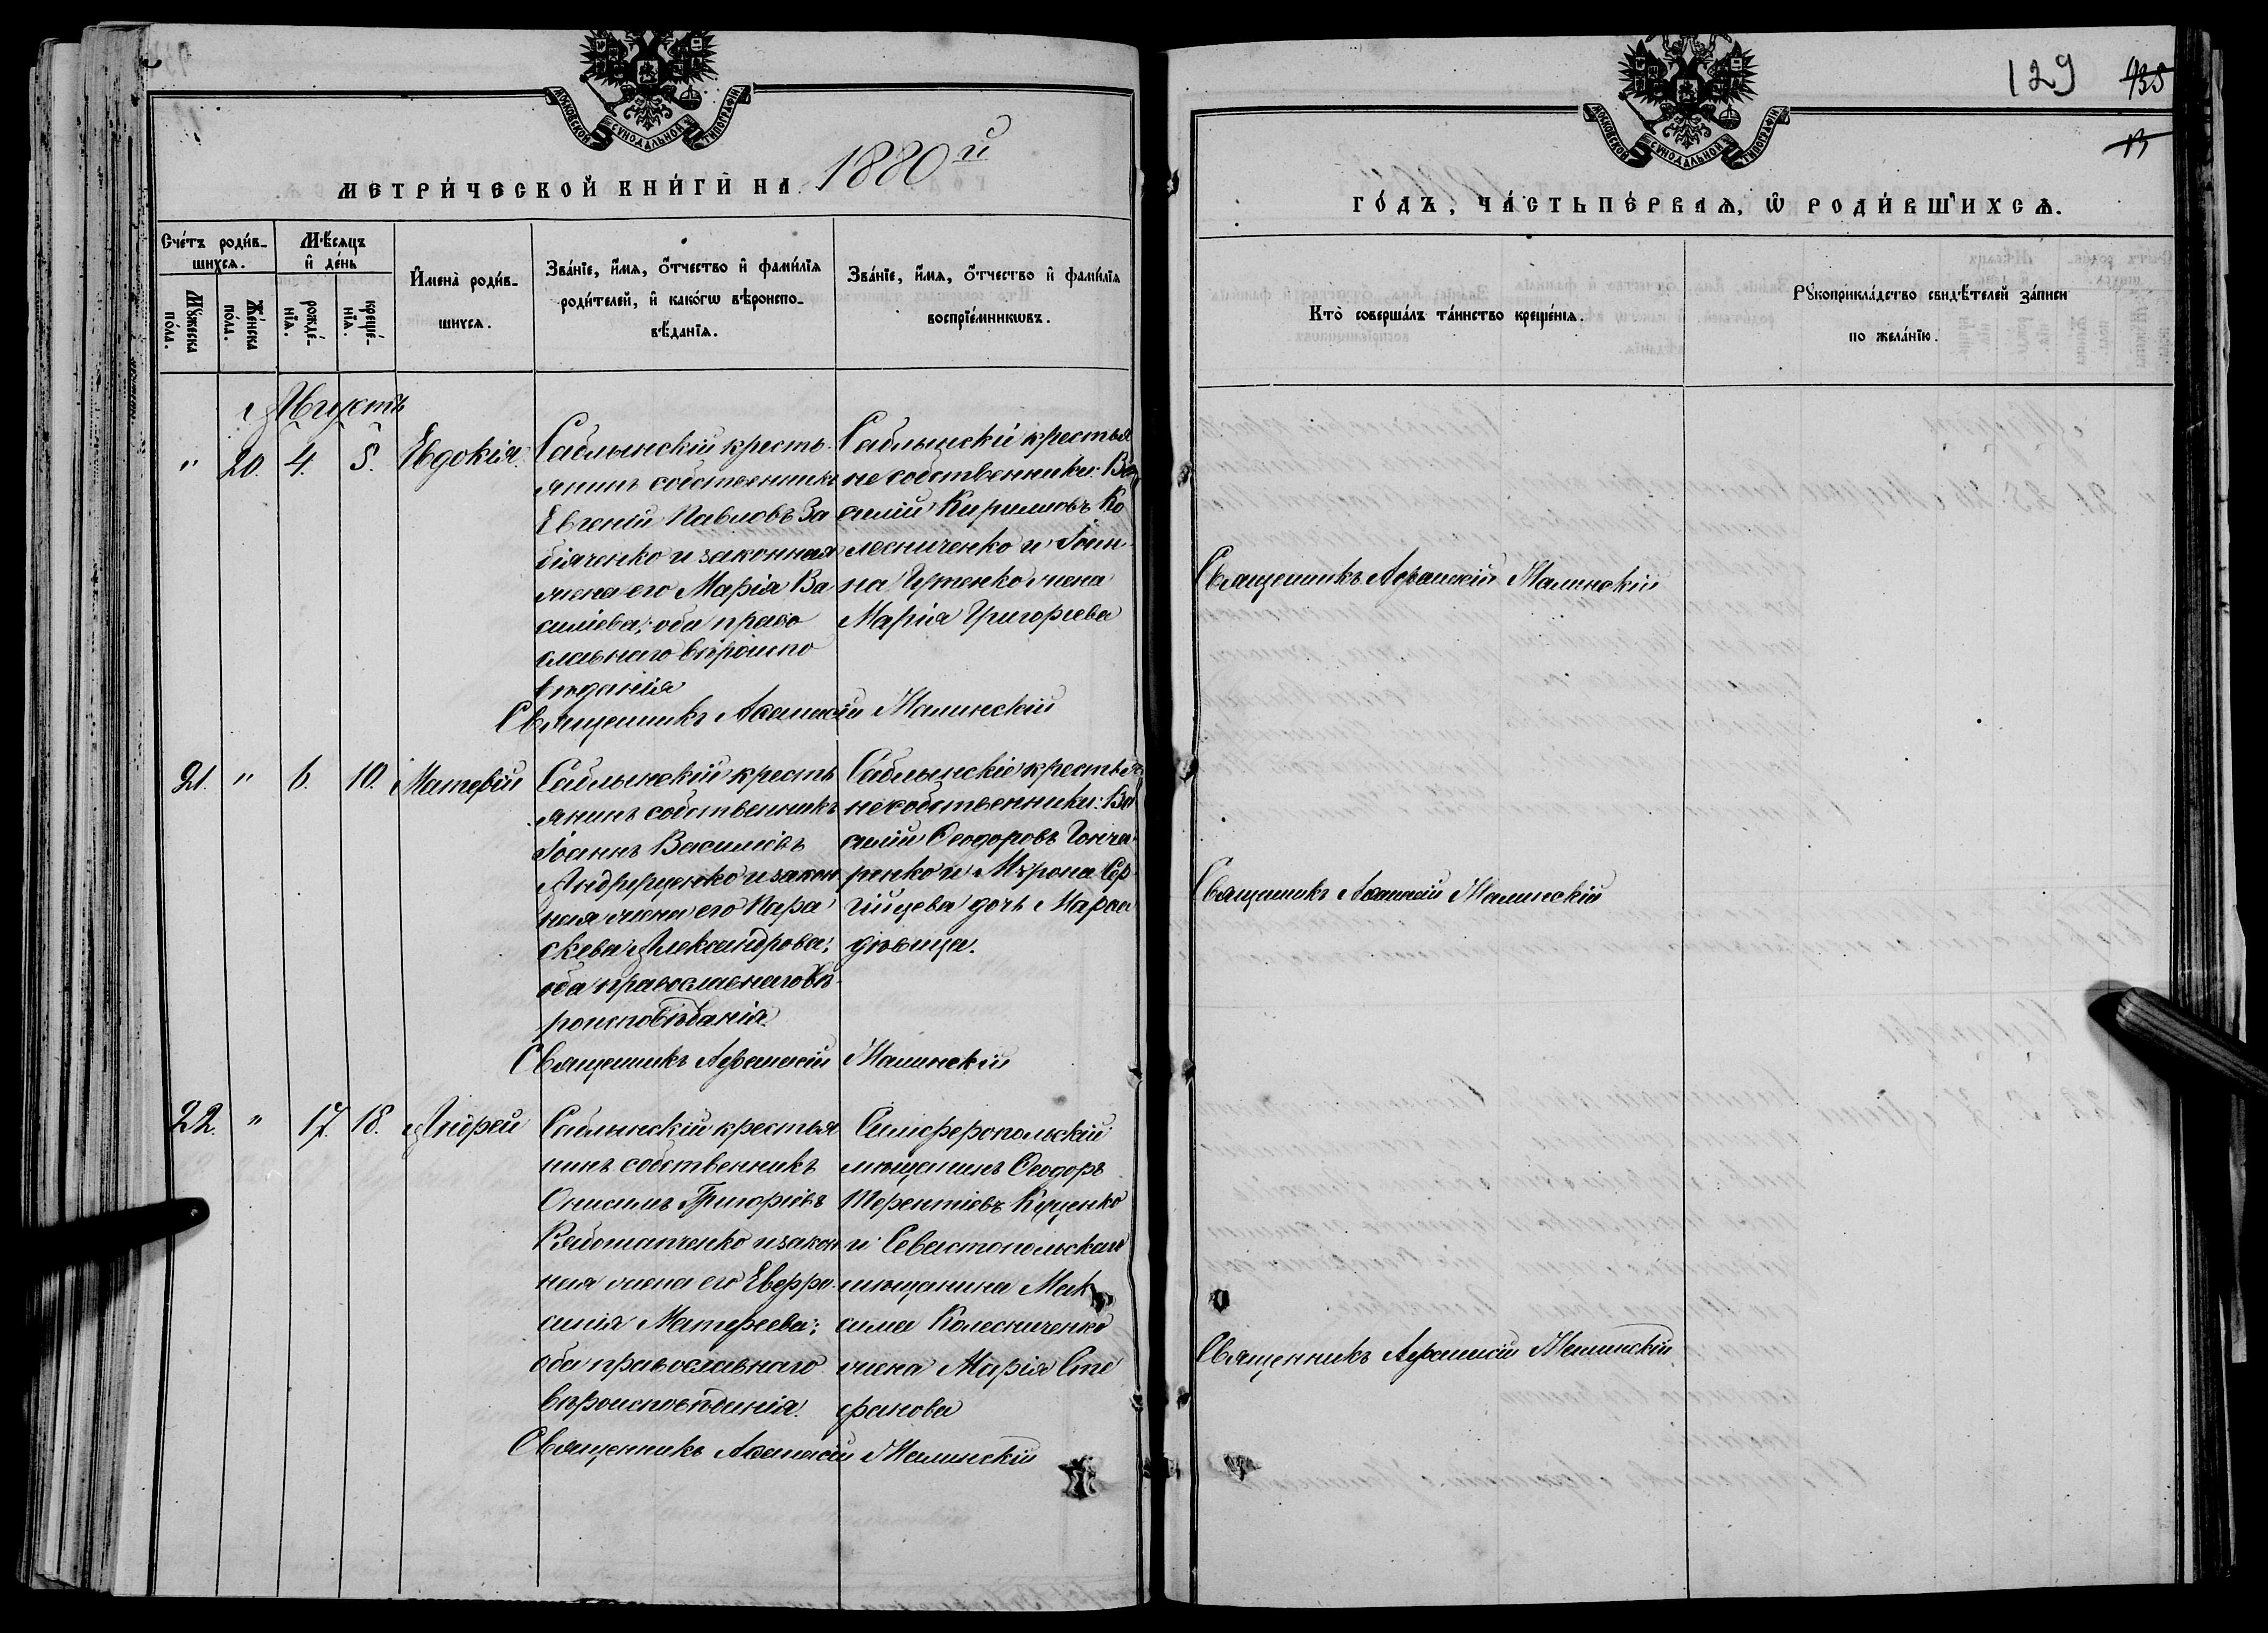 МОСКОВСКОЙ СѴНОДАЛЬНОЙ ТИПОГРАФІИ
МЕТРИ́ЧЕСКОЙ КНИ́ГИ НА 1880й
Счéтъ роди́в-
шихся.
Мѣ́сяцъ
и҆ де́нь
Мꙋ́жеска по́ла.
Же́нска по́ла.
рожде́-
нїѧ.
креще́-
нїѧ.
И҆мена̀ роди́в-
шихсѧ.
Зва́нїе, и҆́мѧ, ѻ҆́тчество и҆ фами́лїѧ
роди́телей, и҆ како́гѡ вѣроиспо-
вѣ́данїѧ.
Зва́нїе, и҆́мѧ, ѻ҆́тчество и҆ фами́лїѧ
воспрїе́мникѡвъ.
Августъ
" 20. 4. 5. Евдокія.
Саблынскій кресть-
янинъ собственникъ
Евгеній Павловъ За
біяченко и законная
жена его Марія Ва
силіева; оба право
славнаго вѣроиспо
вѣданія
Саблынскіе крестья
не собственники: Ва
силій Кирилловъ Ко
лесниченко и Іоан
на жена
Марія Григорьева
Священникъ Аѳанасій Малинскій
21. " 6. 10. Матѳей
Саблынскій кресть
янинъ собственникъ
Іоаннъ Василіевъ
Андрущенко и закон
ная жена его Пара
скева Александрова;
оба православнаго вѣ-
роисповѣданія.
Саблынскіе крестья
не собственники: Ва
силій Ѳеодоровъ Гонча
ренко и Мѵрона
дочь Марѳа
дѣвица.
Священникъ Афанасій Малинскій
22. " 17. 18. Андрей
Саблынскій крестья
нинъ собственникъ
Онисимъ Григоріевъ
и закон
ная жена его Евфро
синія Матфеева;
оба православнаго
вѣроисповѣданія.
Симферопольскій
мѣщанинъ Ѳеодоръ
Терентіевъ Куценко
и Севастопольскаго
мѣщанина Мак
сима Колесниченко
жена Марія Сте
фанова
Священникъ Аѳанасій Малинскій
129 435
13
МОСКОВСКОЙ СѴНОДАЛЬНОЙ ТИПОГРАФІИ
ГО́ДЪ, ЧА́СТЬ ПЕ́РВАѦ, Ѡ҆ РОДИ́ВШИХСѦ.
Кто̀ соверша́лъ та́инство креще́нїѧ.
Рꙋкоприкла́дство свидѣ́телей за́писи
по жела́нїю.
Священникъ Афанасій Малинскій
Священникъ Аѳанасій Малинскій
Священникъ Афанасій Малинскій